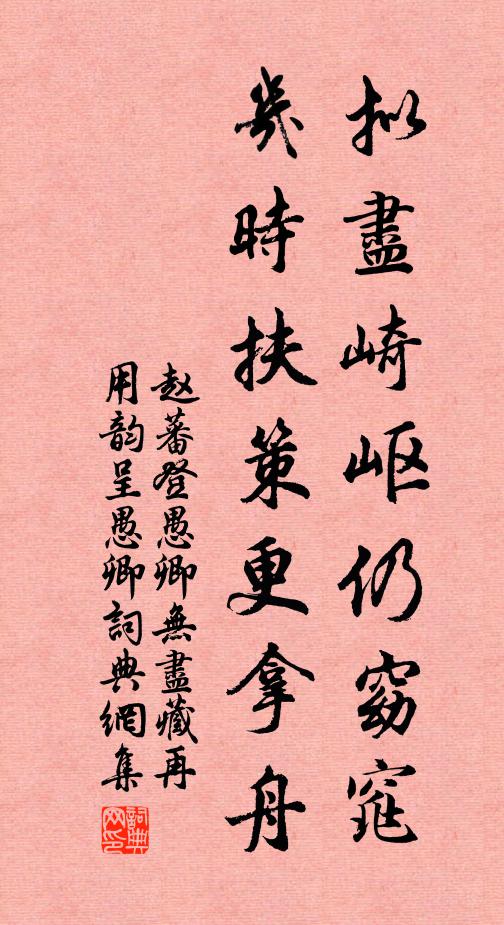 拟盡崎岖仍窈窕
幾時扶策更拿舟
赵蕃登愚卿無盡藏再
用韵呈愚卿詞典網集
詞典网印